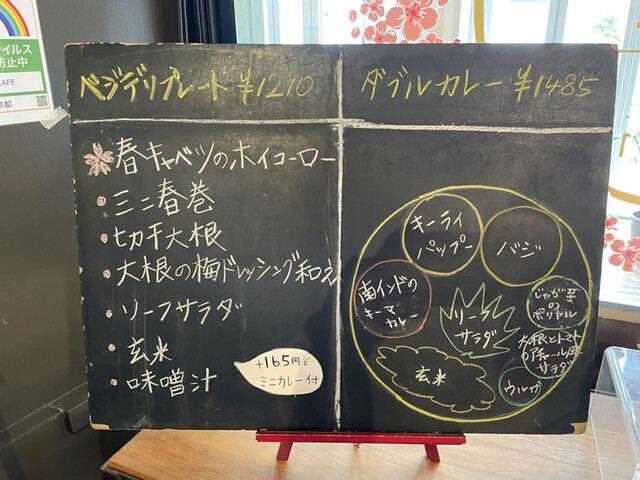 イルス
防止中
CAFE
京都
ベジデリプレート ¥1210
春キャベツのホイコーロー
ミニ春巻
セカチ大根
大根の梅ドレッシング和え
リーフサラダ
玄米
味噌汁
+165円で
ミニカレー付
ダブルカレー ¥1485
キーライ
パップー
バジ
南インドの
キーマ
カレー
リーフ
サラダ
じゃが芋
の
ポリヤル
大根とトマト
のアチャール風
サラダ
ウルガ
玄米